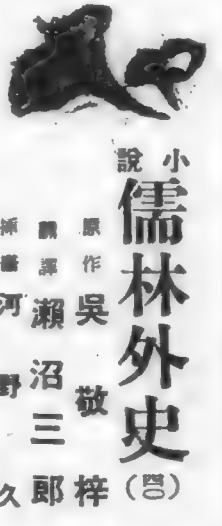 小說
儒林外史(四)
原作 吳敬梓
譯 瀨沼三郎
畫 河野久